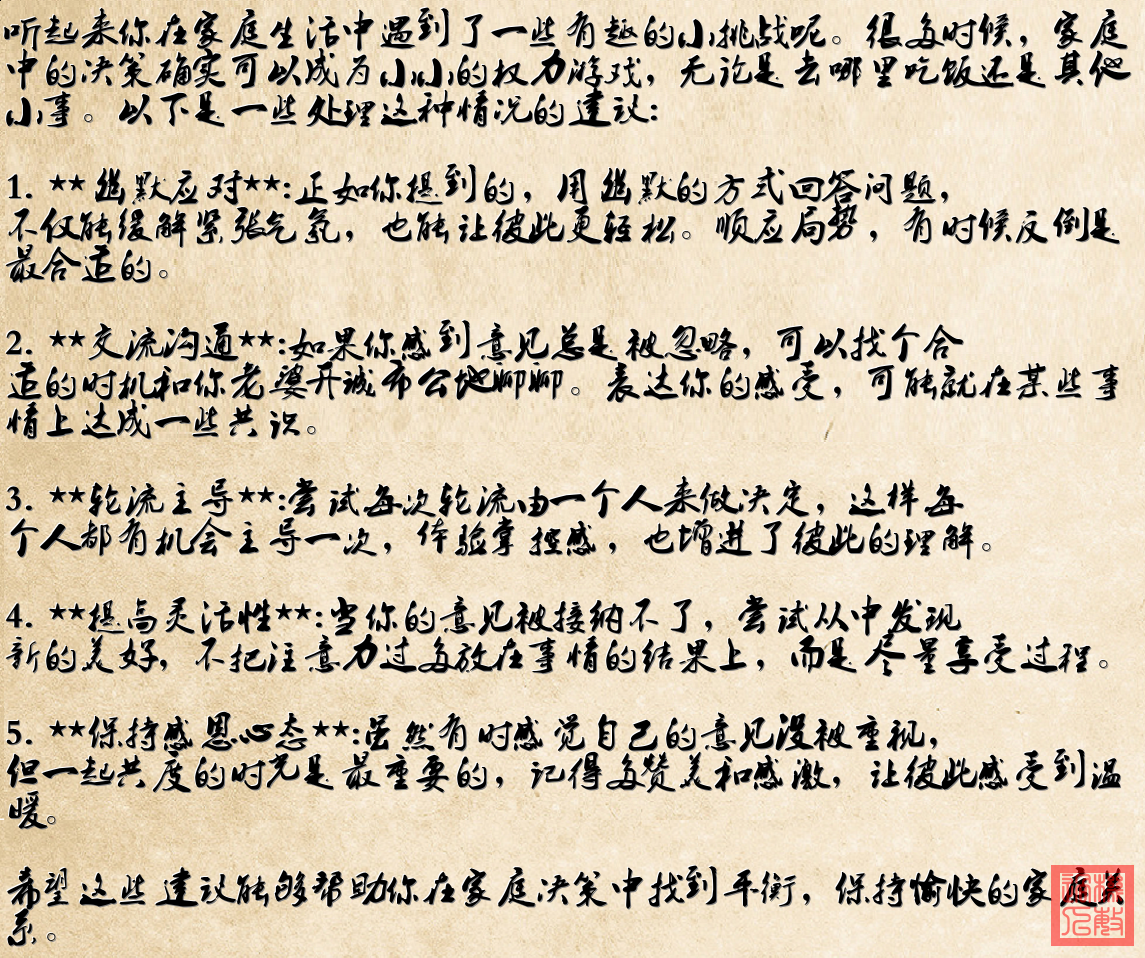 听起来你在家庭生活中遇到了一些有趣的小挑战呢。很多时候，家庭
中的决策确实可以成为小小的权力游戏，无论是去哪里吃饭还是其他
小事。以下是一些处理这种情况的建议：
1. **幽默应对**:正如你提到的，用幽默的方式回答问题，
不仅能缓解紧张气氛，也能让彼此更轻松。顺应局势，有时候反倒是
最合适的。
2. **交流沟通**:如果你感到意见总是被忽略，可以找个合
适的时机和你老婆开诚布公地聊聊。表达你的感受，可能就在某些事
情上达成一些共识。
3. **轮流主导**:尝试每次轮流由一个人来做决定，这样每
个人都有机会主导一次，体验掌控感，也增进了彼此的理解。
4. **提高灵活性**:当你的意见被接纳不了，尝试从中发现
新的美好，不把注意力过多放在事情的结果上，而是尽量享受过程。
5. **保持感恩心态**:虽然有时感觉自己的意见没被重视，
但一起共度的时光是最重要的，记得多赞美和感激，让彼此感受到温
暖。
希望这些建议能够帮助你在家庭决策中找到平衡，保持愉快的家庭关
系。